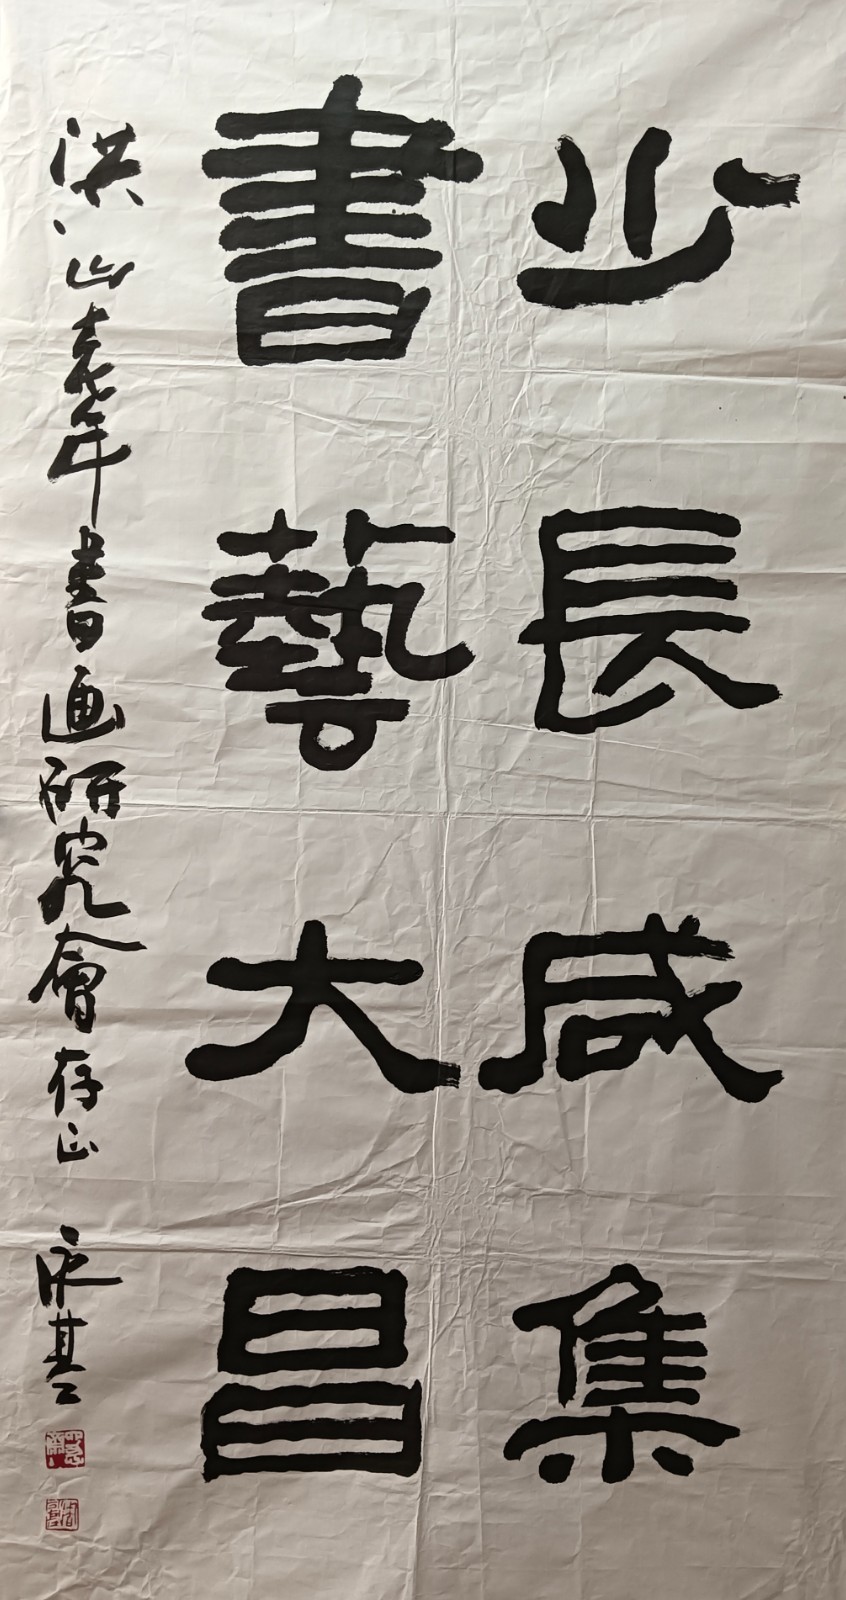 少長咸集
書藝大昌
洪山老年書画研究會存正